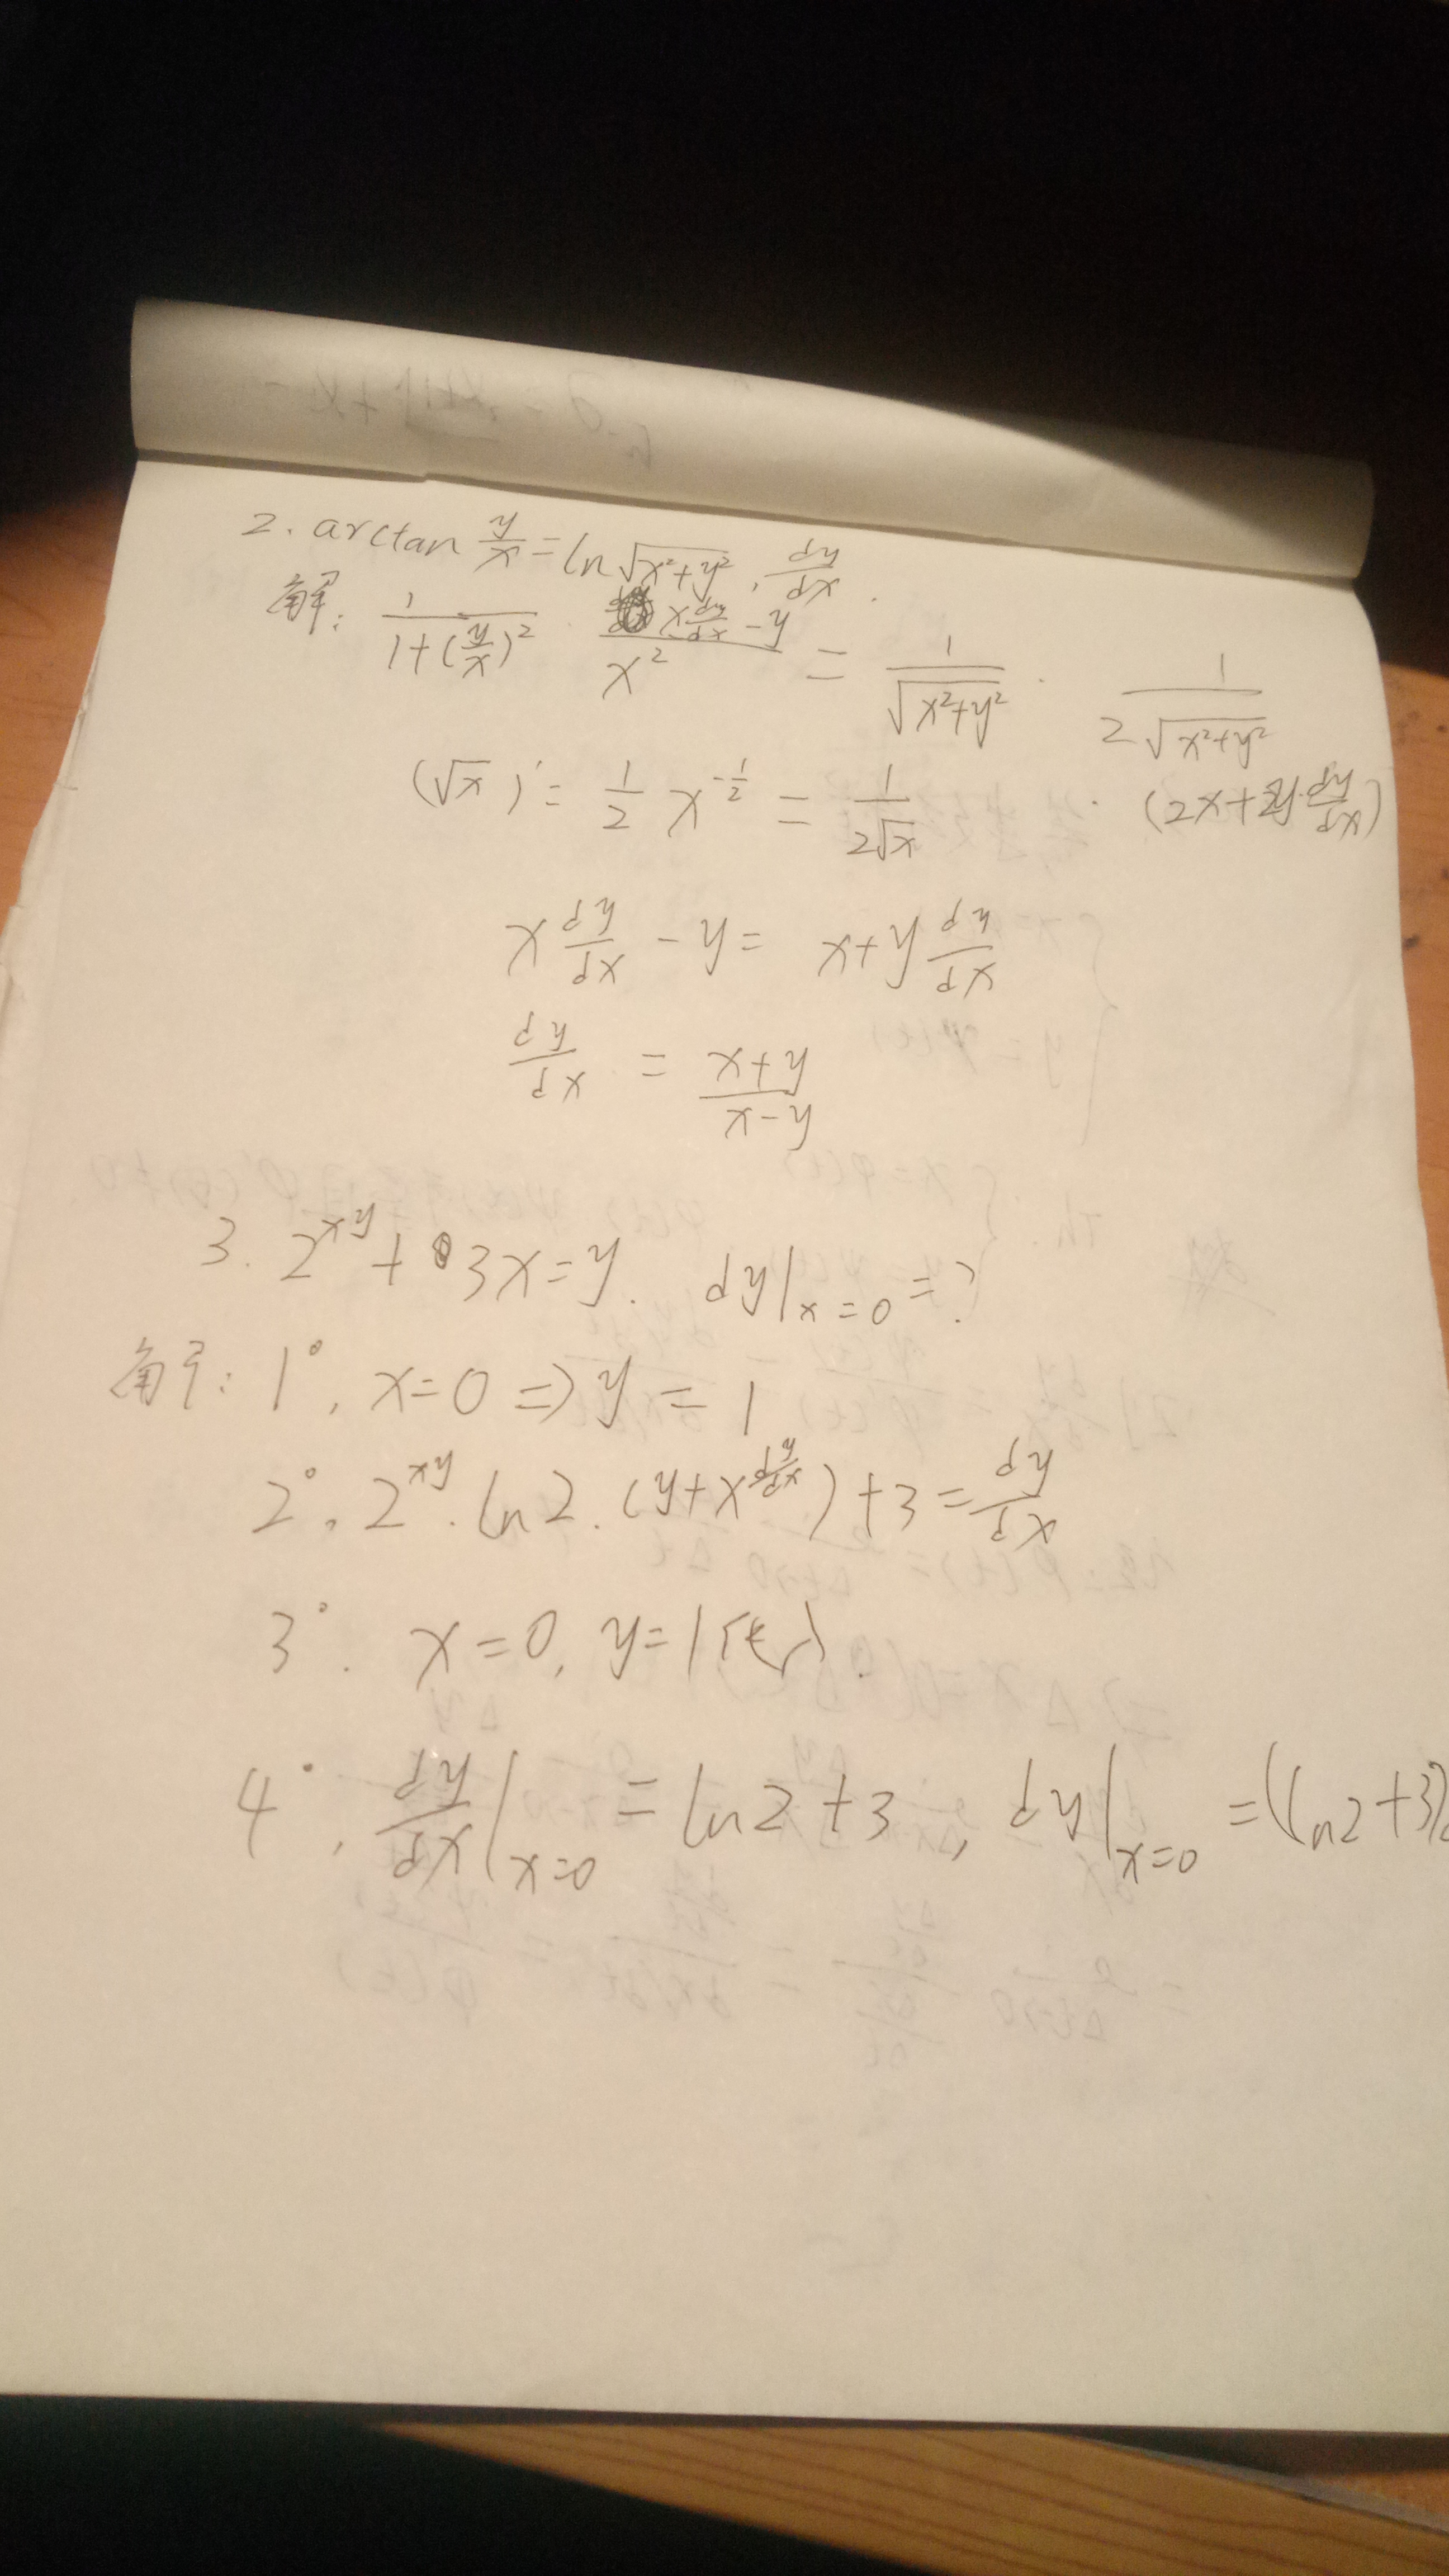 2. arctan y/x = ln √(x²+y²), dy/dx.
解: 1/(1+(y/x)²) · (x dy/dx - y)/x² = 1/√(x²+y²) · 1/(2√(x²+y²))
· (2x+2y·dy/dx)
(√x)' = 1/2 x^(-1/2) = 1/(2√x)
x dy/dx - y = x+y dy/dx
dy/dx = (x+y)/(x-y)
3. 2^(xy) + 3x = y. dy|x=0 = ?
解: 1°, x=0 => y = 1
2°. 2^(xy) · ln2 · (y+x dy/dx) + 3 = dy/dx
3°. x=0, y=1代入.
4°. dy/dx|x=0 = ln2+3, dy|x=0 = (ln2+3)